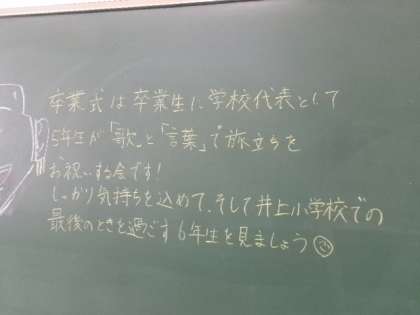 卒業式は卒業生に学校代表として
5年生が「歌」と「言葉」で旅立ちを
お祝いする会です!
しっかり気持ちを込めて、そして井上小学校での
最後のときを過ごす6年生を見ましょう